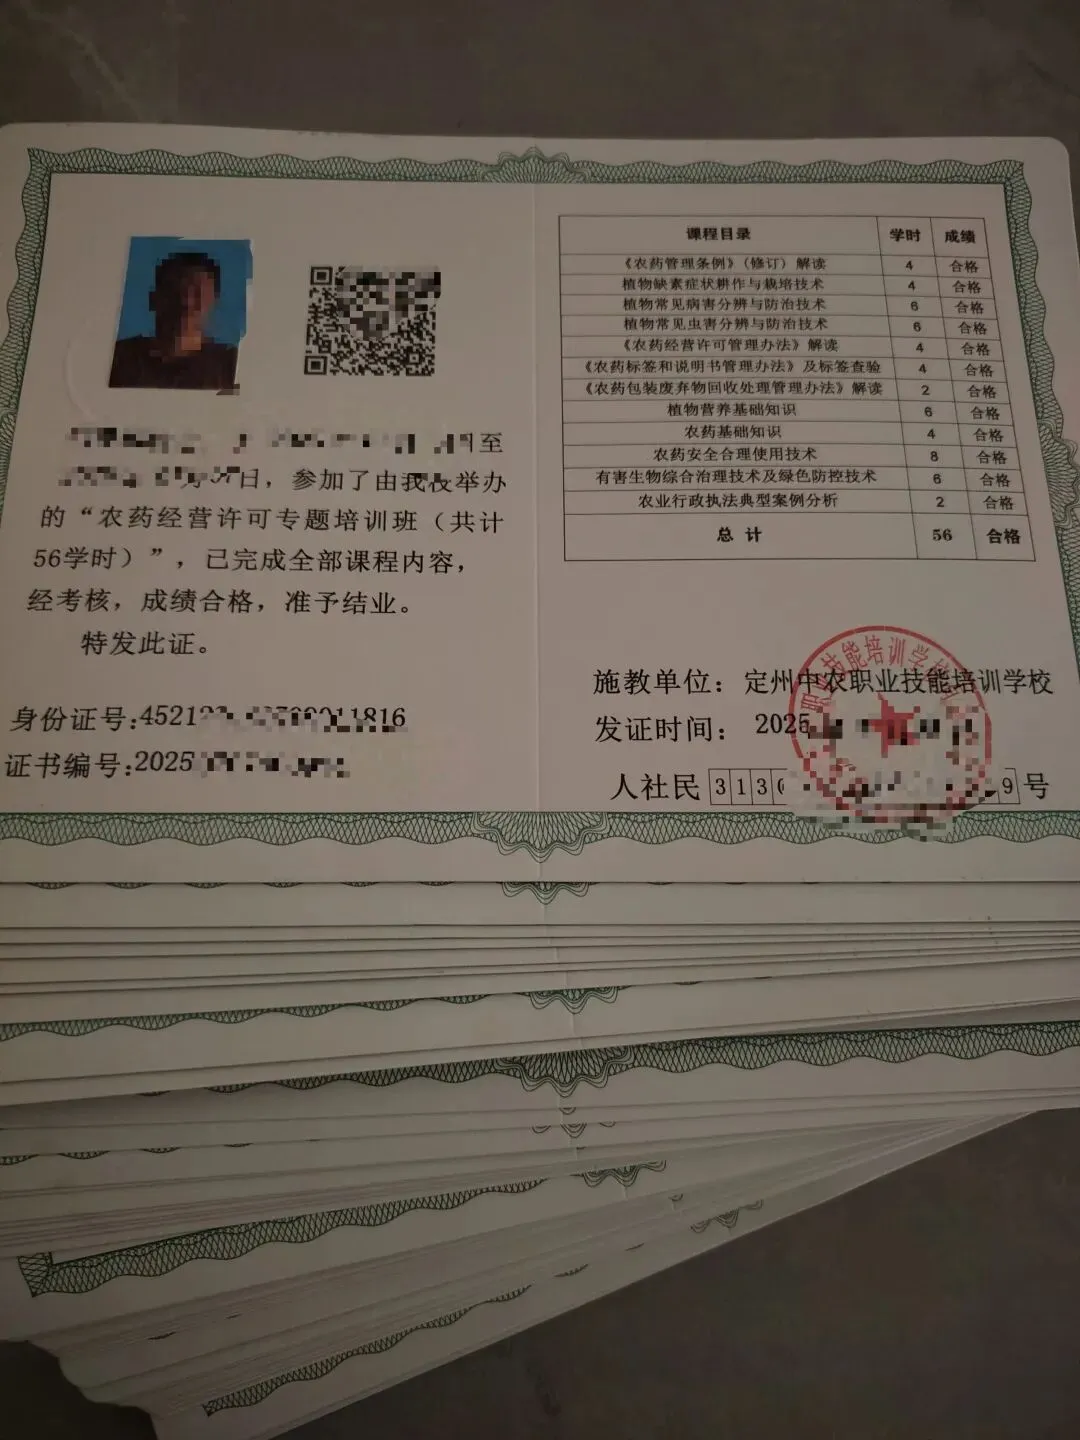 日至
日，参加了由我校举办
的“农药经营许可专题培训班（共计
56学时）”，已完成全部课程内容，
经考核，成绩合格，准予结业。
特发此证。
身份证号:
证书编号:2025
课程目录 学时 成绩
《农药管理条例》(修订) 解读 4 合格
植物缺素症状耕作与栽培技术 4 合格
植物常见病害分辨与防治技术 6 合格
植物常见虫害分辨与防治技术 6 合格
《农药经营许可管理办法》解读 4 合格
《农药标签和说明书管理办法》及标签查验 4 合格
《农药包装废弃物回收处理管理办法》解读 2 合格
植物营养基础知识 6 合格
农药基础知识 4 合格
农药安全合理使用技术 8 合格
有害生物综合治理技术及绿色防控技术 6 合格
农业行政执法典型案例分析 2 合格
总 计 56 合格
施教单位：定州中农职业技能培训学校
发证时间：2025
人社民 313 9 号
职业技能培训学校